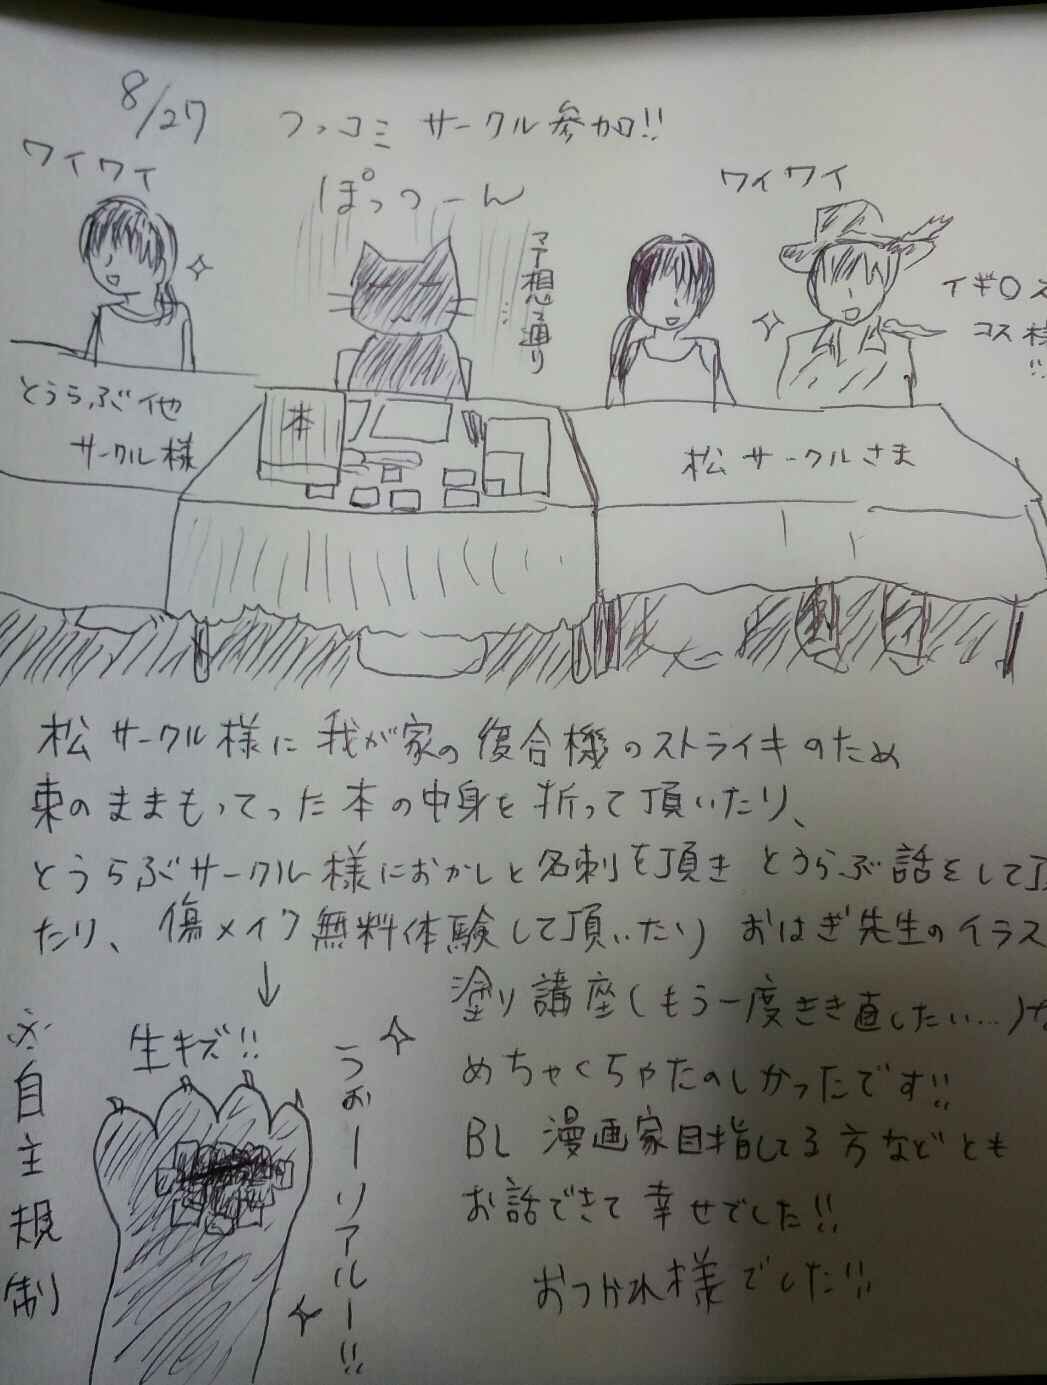 8/27 フッコミ サークル参加!!
ワイワイ
ぽっつーん
ワイワイ
予想通り
…
イギ○ス
コス様
!!
とうらぶ他
サークル様
本
松サークルさま
松サークル様に我が家の復合機のストライキのため
束のままもってった本の中身を折って頂いたり、
とうらぶサークル様におかしと名刺を頂き とうらぶ話をして頂
たり、傷メイク無料体験して頂いたり おはぎ先生のイラス
塗り講座(もう一度きき直したい…)
めちゃくちゃたのしかったです!!
BL 漫画家目指してる方などとも
お話できて幸せでした!!
おつかれ様でした!!
↓
生キズ!!
うおーリアルー!!
※自主規制